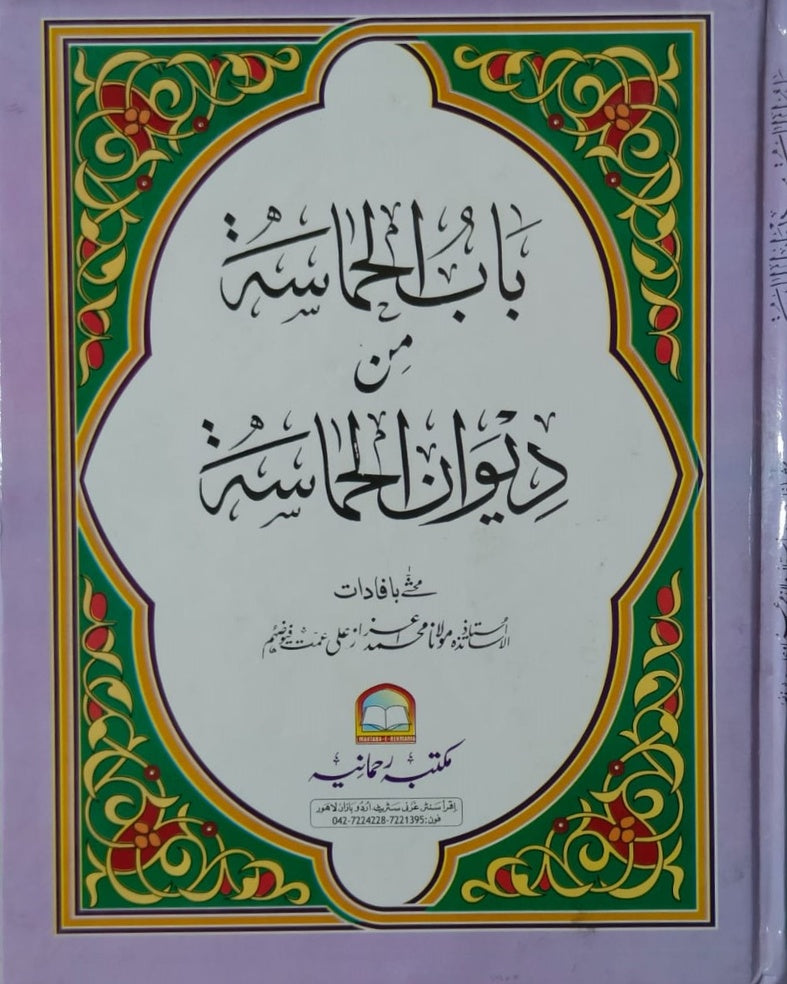 بَابُ الْحَمَاسَةِ
مِنْ
دِيْوَانِ الْحَمَاسَةِ
محشّٰے بافادات
استاذ الاساتذہ مولانا محمد اعزاز علی عمت فیوضہم
MAKTABA-E-REHMANIA
مکتبہ رحمانیہ
اِقرأ سَنٹر غَزنی سَٹریٹ اُردو بازار لاهور
فون:042-7224228-7221395